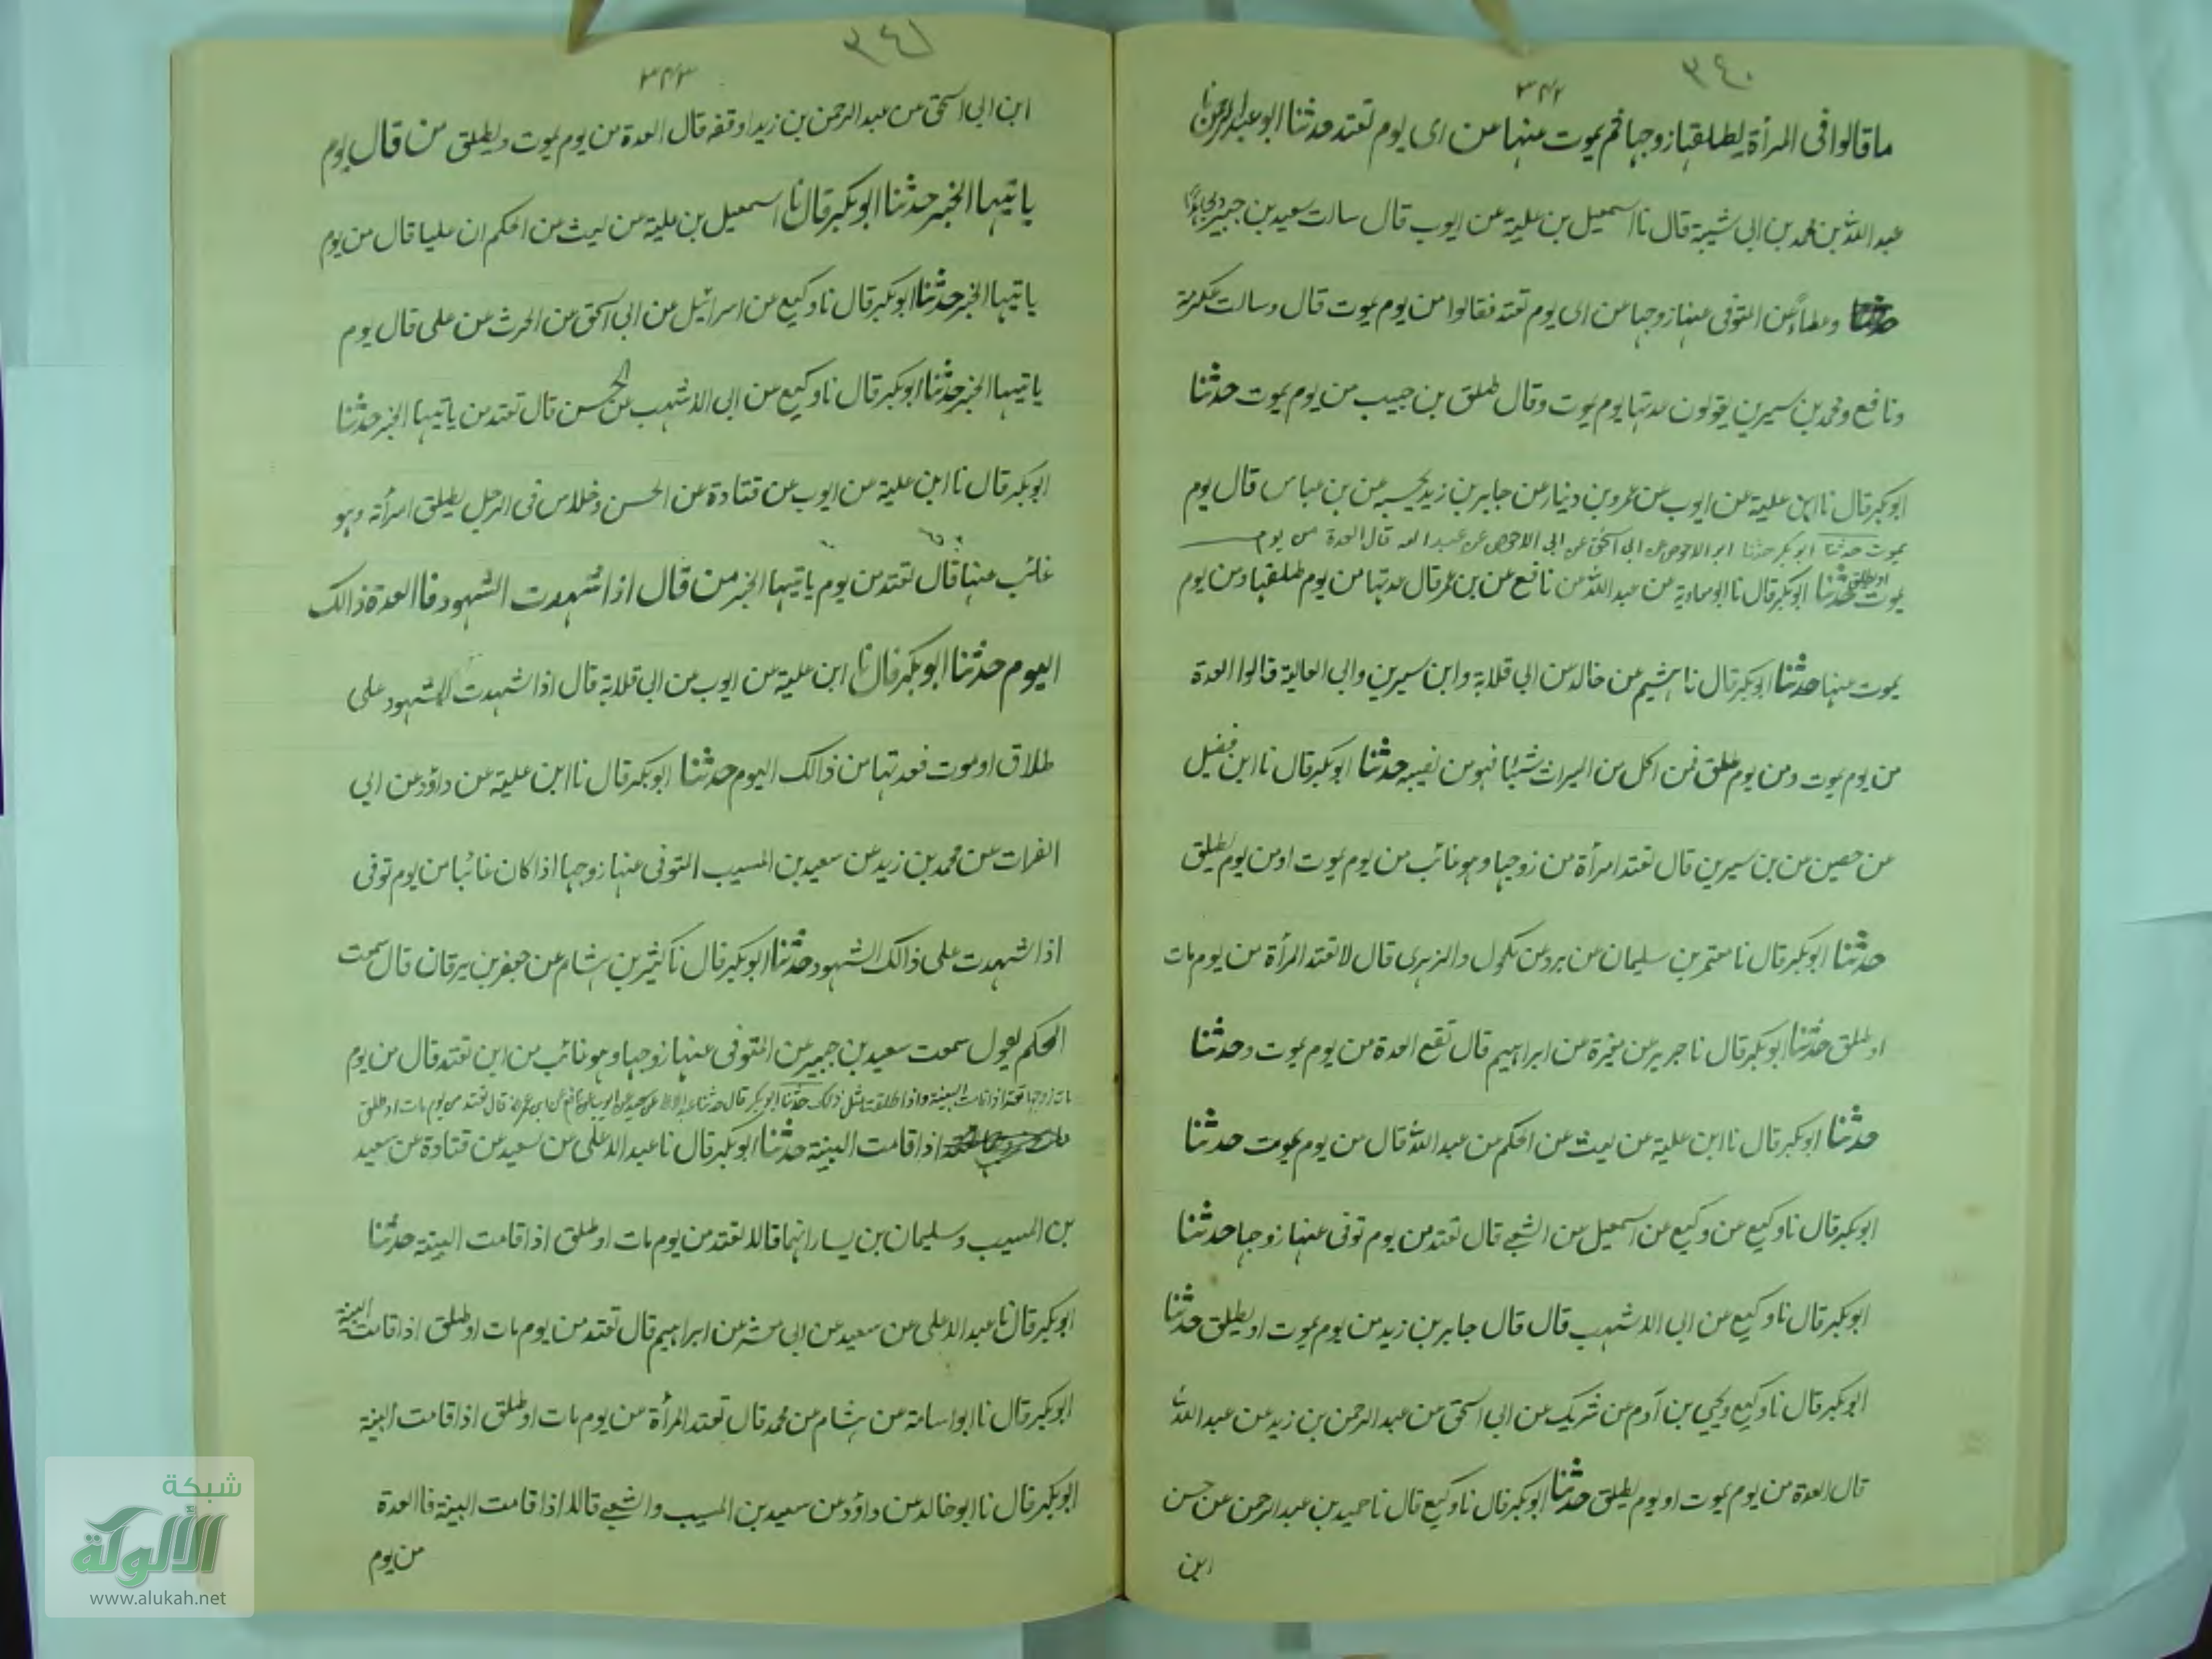 ٣٤٠
٣٤٢
ما قالوا فى المرأة يطلقها زوجها ثم يموت عنها من اى يوم تعتد حدثنا ابو عبد الرحمن نا
عبد الله بن محمد بن ابى شيبة قال نا اسمعيل بن علية عن ايوب قال سالت سعيد بن جبير ومجاهدًا
وعطاءً عن المتوفى عنها زوجها من اى يوم تعتد فقالوا من يوم يموت قال وسالت عكرمة
ونافع ومحمد بن سيرين يقولون عدتها يوم يموت وقال طلق بن حبيب من يوم يموت حدثنا
ابو بكر قال نا ابن علية عن ايوب عن عمرو بن دينار عن جابر بن زيد يحسبه عن بن عباس قال يوم
يموت حدثنا ابو بكر حدثنا ابو الاحوص عن ابى اسحق عن ابى الاحوص عن عبد الله قال العدة من يوم
يموت او يطلق حدثنا ابو بكر قال نا ابو معاوية عن عبد الله عن نافع عن بن عمر قال عدتها من يوم طلقها ومن يوم
يموت عنها حدثنا ابو بكر قال نا هشيم عن خالد عن ابى قلابة وابن سيرين وابى العالية قالوا العدة
من يوم يموت ومن يوم طلق فمن اكل من الميراث شيئا فهو من نفسه حدثنا ابو بكر قال نا ابن فضيل
عن حصين عن بن سيرين قال تعتد امرأة من زوجها وهو غائب من يوم يموت او من يوم يطلق
حدثنا ابو بكر قال نا معتمر بن سليمان عن برد عن مكحول والزهرى قال لا تعتد المرأة من يوم مات
او طلق حدثنا ابو بكر قال نا جرير عن مغيرة عن ابراهيم قال تقع العدة من يوم يموت وحدثنا
حدثنا ابو بكر قال نا ابن علية عن ليث عن الحكم عن عبد الله قال من يوم يموت حدثنا
ابو بكر قال نا وكيع عن وكيع عن اسمعيل عن الشعبى قال تعتد من يوم توفى عنها زوجها حدثنا
ابو بكر قال نا وكيع عن ابى الاشهب قال قال جابر بن زيد من يوم يموت او يطلق حدثنا
ابو بكر قال نا وكيع ويحيى بن آدم عن شريك عن ابى اسحق عن عبد الرحمن بن زيد عن عبد الله
قال العدة من يوم يموت او يوم يطلق حدثنا ابو بكر قال نا وكيع قال نا حميد بن عبد الرحمن عن حسن
ابن
٣٤١
٣٤٣
ابن ابى اسحق عن عبد الرحمن بن زيد اوقفه قال العدة من يوم يموت ويطلق من قال يوم
ياتيها الخبر حدثنا ابو بكر قال نا اسمعيل بن علية عن ليث عن الحكم ان عليا قال من يوم
ياتيها الخبر حدثنا ابو بكر قال نا وكيع عن اسرائيل عن ابى اسحق عن الحرث عن على قال يوم
ياتيها الخبر حدثنا ابو بكر قال نا وكيع عن ابى الاشهب عن الحسن قال تعتد من ياتيها الخبر حدثنا
ابو بكر قال نا ابن علية عن ايوب عن قتادة عن الحسن وخلاس فى الرجل يطلق امرأته وهو
غائب عنها قال تعتد من يوم ياتيها الخبر من قال اذا شهدت الشهود فا العدة ذالك
اليوم حدثنا ابو بكر قال نا ابن علية عن ايوب عن ابى قلابة قال اذا شهدت الشهود على
طلاق او موت فعدتها من ذالك اليوم حدثنا ابو بكر قال نا ابن علية عن داؤد عن ابى
الفرات عن محمد بن زيد عن سعيد بن المسيب المتوفى عنها زوجها اذا كان غائبا من يوم توفى
اذا شهدت على ذالك الشهود حدثنا ابو بكر قال نا كثير بن هشام عن جعفر بن برقان قال سمعت
الحكم يقول سمعت سعيد بن جبير عن المتوفى عنها زوجها وهو غائب من اين تعتد قال من يوم
مات زوجها تعتد اذا قامت البينة واذا طلقت مثل ذلك حدثنا ابو بكر قال حدثنا عبد الاعلى عن سعيد عن ايوب عن نافع عن ابن عمر انه قال تعتد من يوم مات او طلق
اذا قامت البينة حدثنا ابو بكر قال نا عبد الاعلى عن سعيد عن قتادة عن سعيد
بن المسيب وسليمان بن يسار انهما قالا تعتد من يوم مات او طلق اذا قامت البينة حدثنا
ابو بكر قال نا عبد الاعلى عن سعيد عن ابى معشر عن ابراهيم قال تعتد من يوم مات او طلق اذا قامت البينة
ابو بكر قال نا ابو اسامة عن هشام عن محمد قال تعتد المرأة من يوم مات او طلق اذا قامت البينة
ابو بكر قال نا ابو خالد عن داؤد عن سعيد بن المسيب والشعبى قالا اذا قامت البينة فا العدة
من يوم
شبكة
الألوكة
www.alukah.net